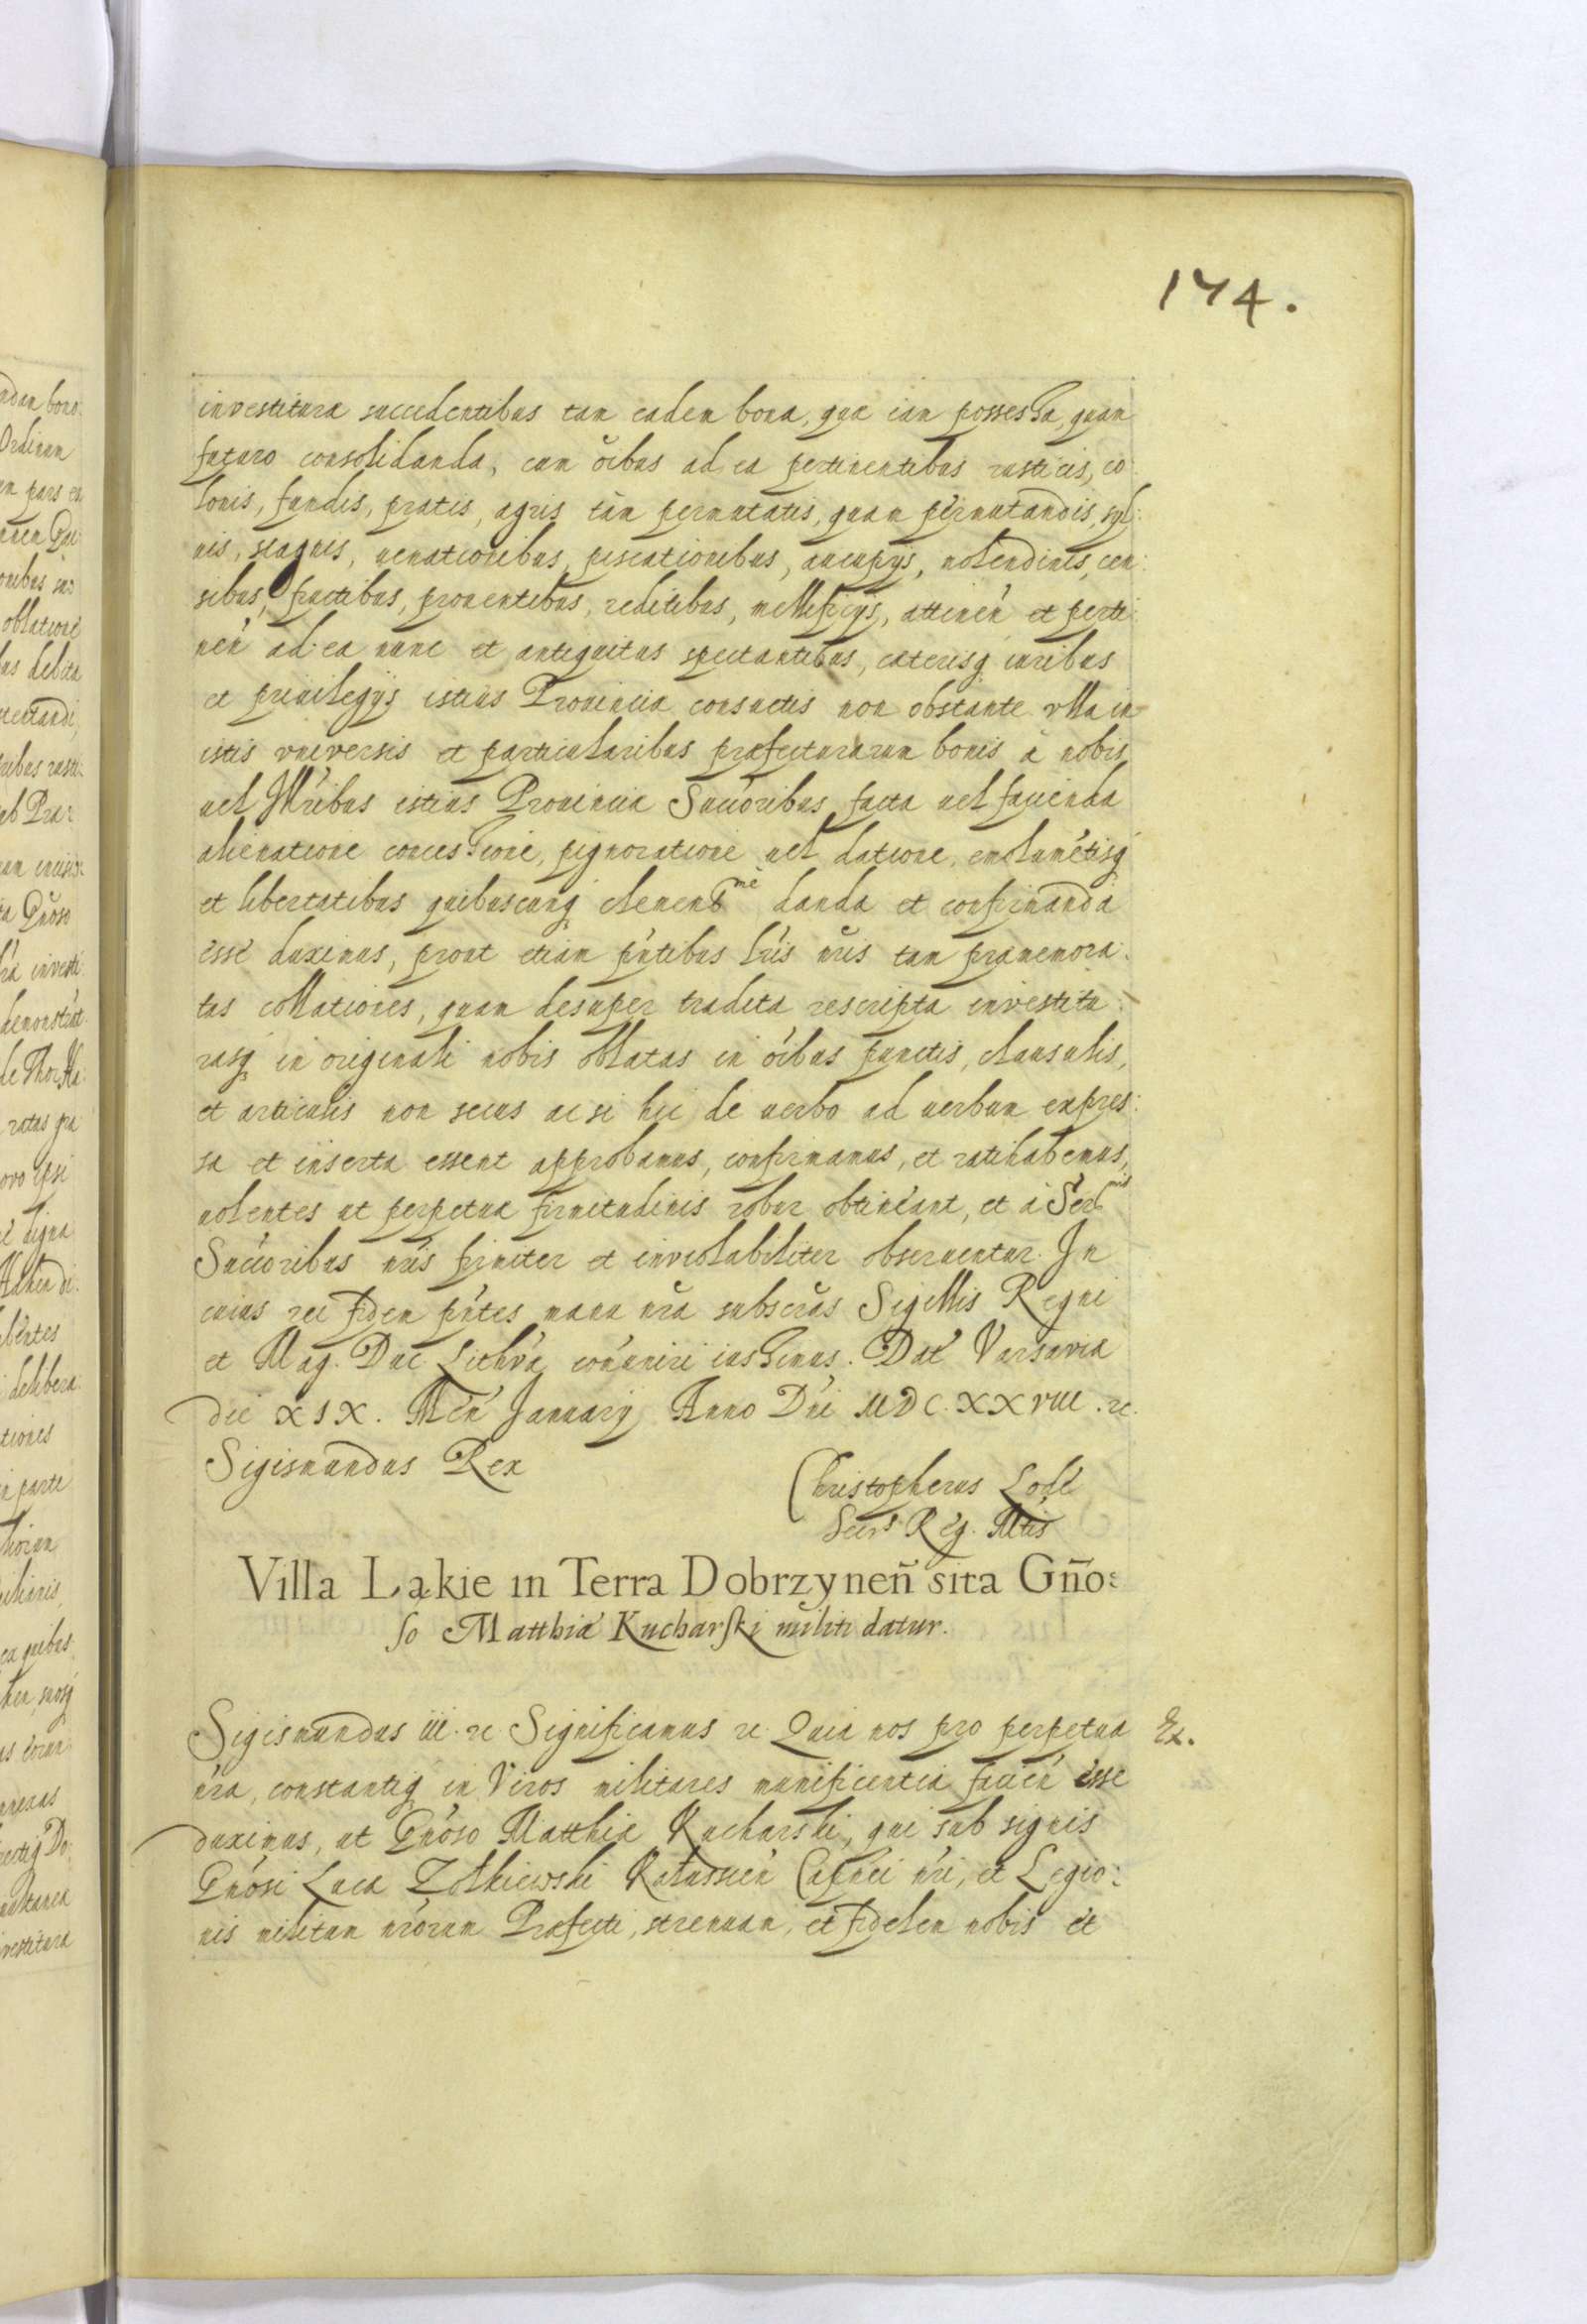 174.
investitura succedentibus tam eadem bona, quæ iam possessa, quam
futuro consolidanda, cum oĩbus ad ea pertinentibus rusticis, co:
lonis, fundis, pratis, agris tàm permutatis, quam permutandis, syl:
uis, stagnis, uenationibus, piscationibus, aucupijs, molendinis, cen:
sibus, fructibus, prouentibus, reditibus, mellificijs, attineń et perti:
neń ad ea nunc et antiquitus spectantibus, cæterisq iuribus
et priuilegijs istius Prouinciæ consuetis non obstante vlla in
istis vniversis et particularibus præfecturarum bonis à nobis
uel Illribus istius Prouinciæ Succoribus facta uel facienda
alienatione concessione, pignoratione uel datione, emolumétisq
et libertatibus quibuscunq clemenssmè danda et confirmanda
esse duximus, prout etiam pńtibus lris nr̃is tam præmemora:
tas collationes, quam desuper tradita rescripta investitu:
rasq in originali nobis oblatas in oĩbus punctis, clausulis,
et articulis non secus ac si hic de uerbo ad uerbum expres:
sa et inserta essent approbamus, confirmamus, et ratihabemus,
uolentes ut perpetuæ firmitudinis robur obtineant, et à Serssmis
Succoribus nris firmiter et inviolabiliter obseruentur. In
cuius rei fidem pńtes manu nr̃a subscr̃as Sigillis Regni
et Mag. Duc. Lithvæ cońuniri iussimus. Dat́ Varsaviæ
die XIX. Meń Januarij Anno Dńi MDC.XXVIII. rc.
Sigismundus Rex
Christopherus
Secrs Reg. Mtis
Villa Łąkie in Terra Dobrzyneñ sita Gño:
so Matthiæ Kucharski militi datur.
Sigismundus III. rc Significamus rc Quia nos pro perpetua Ex.
nr̃a, constantiq in Viros militares munificentia facień esse
duximus, ut Gnóso Matthiæ Kucharski, qui sub signis
Gnósi Lucæ Zołkiewski Kałussień Capnei nri, et Legio:
nis militum nrórum Præfecti, strenuam, et fidelem nobis et